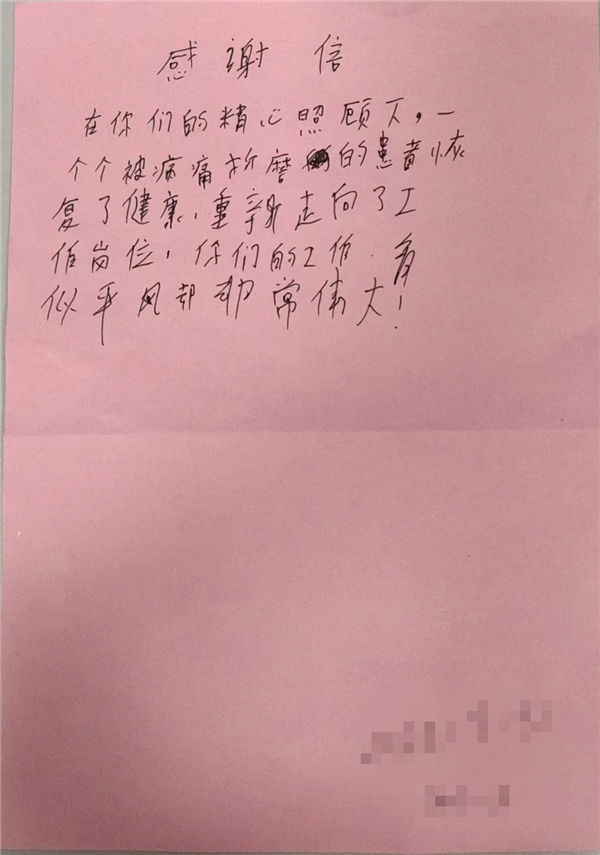 感谢信
在你们的精心照顾下,一
个个被病痛折磨的患者恢
复了健康,重新走向了工
作岗位,你们的工作.看
似平凡却非常伟大!